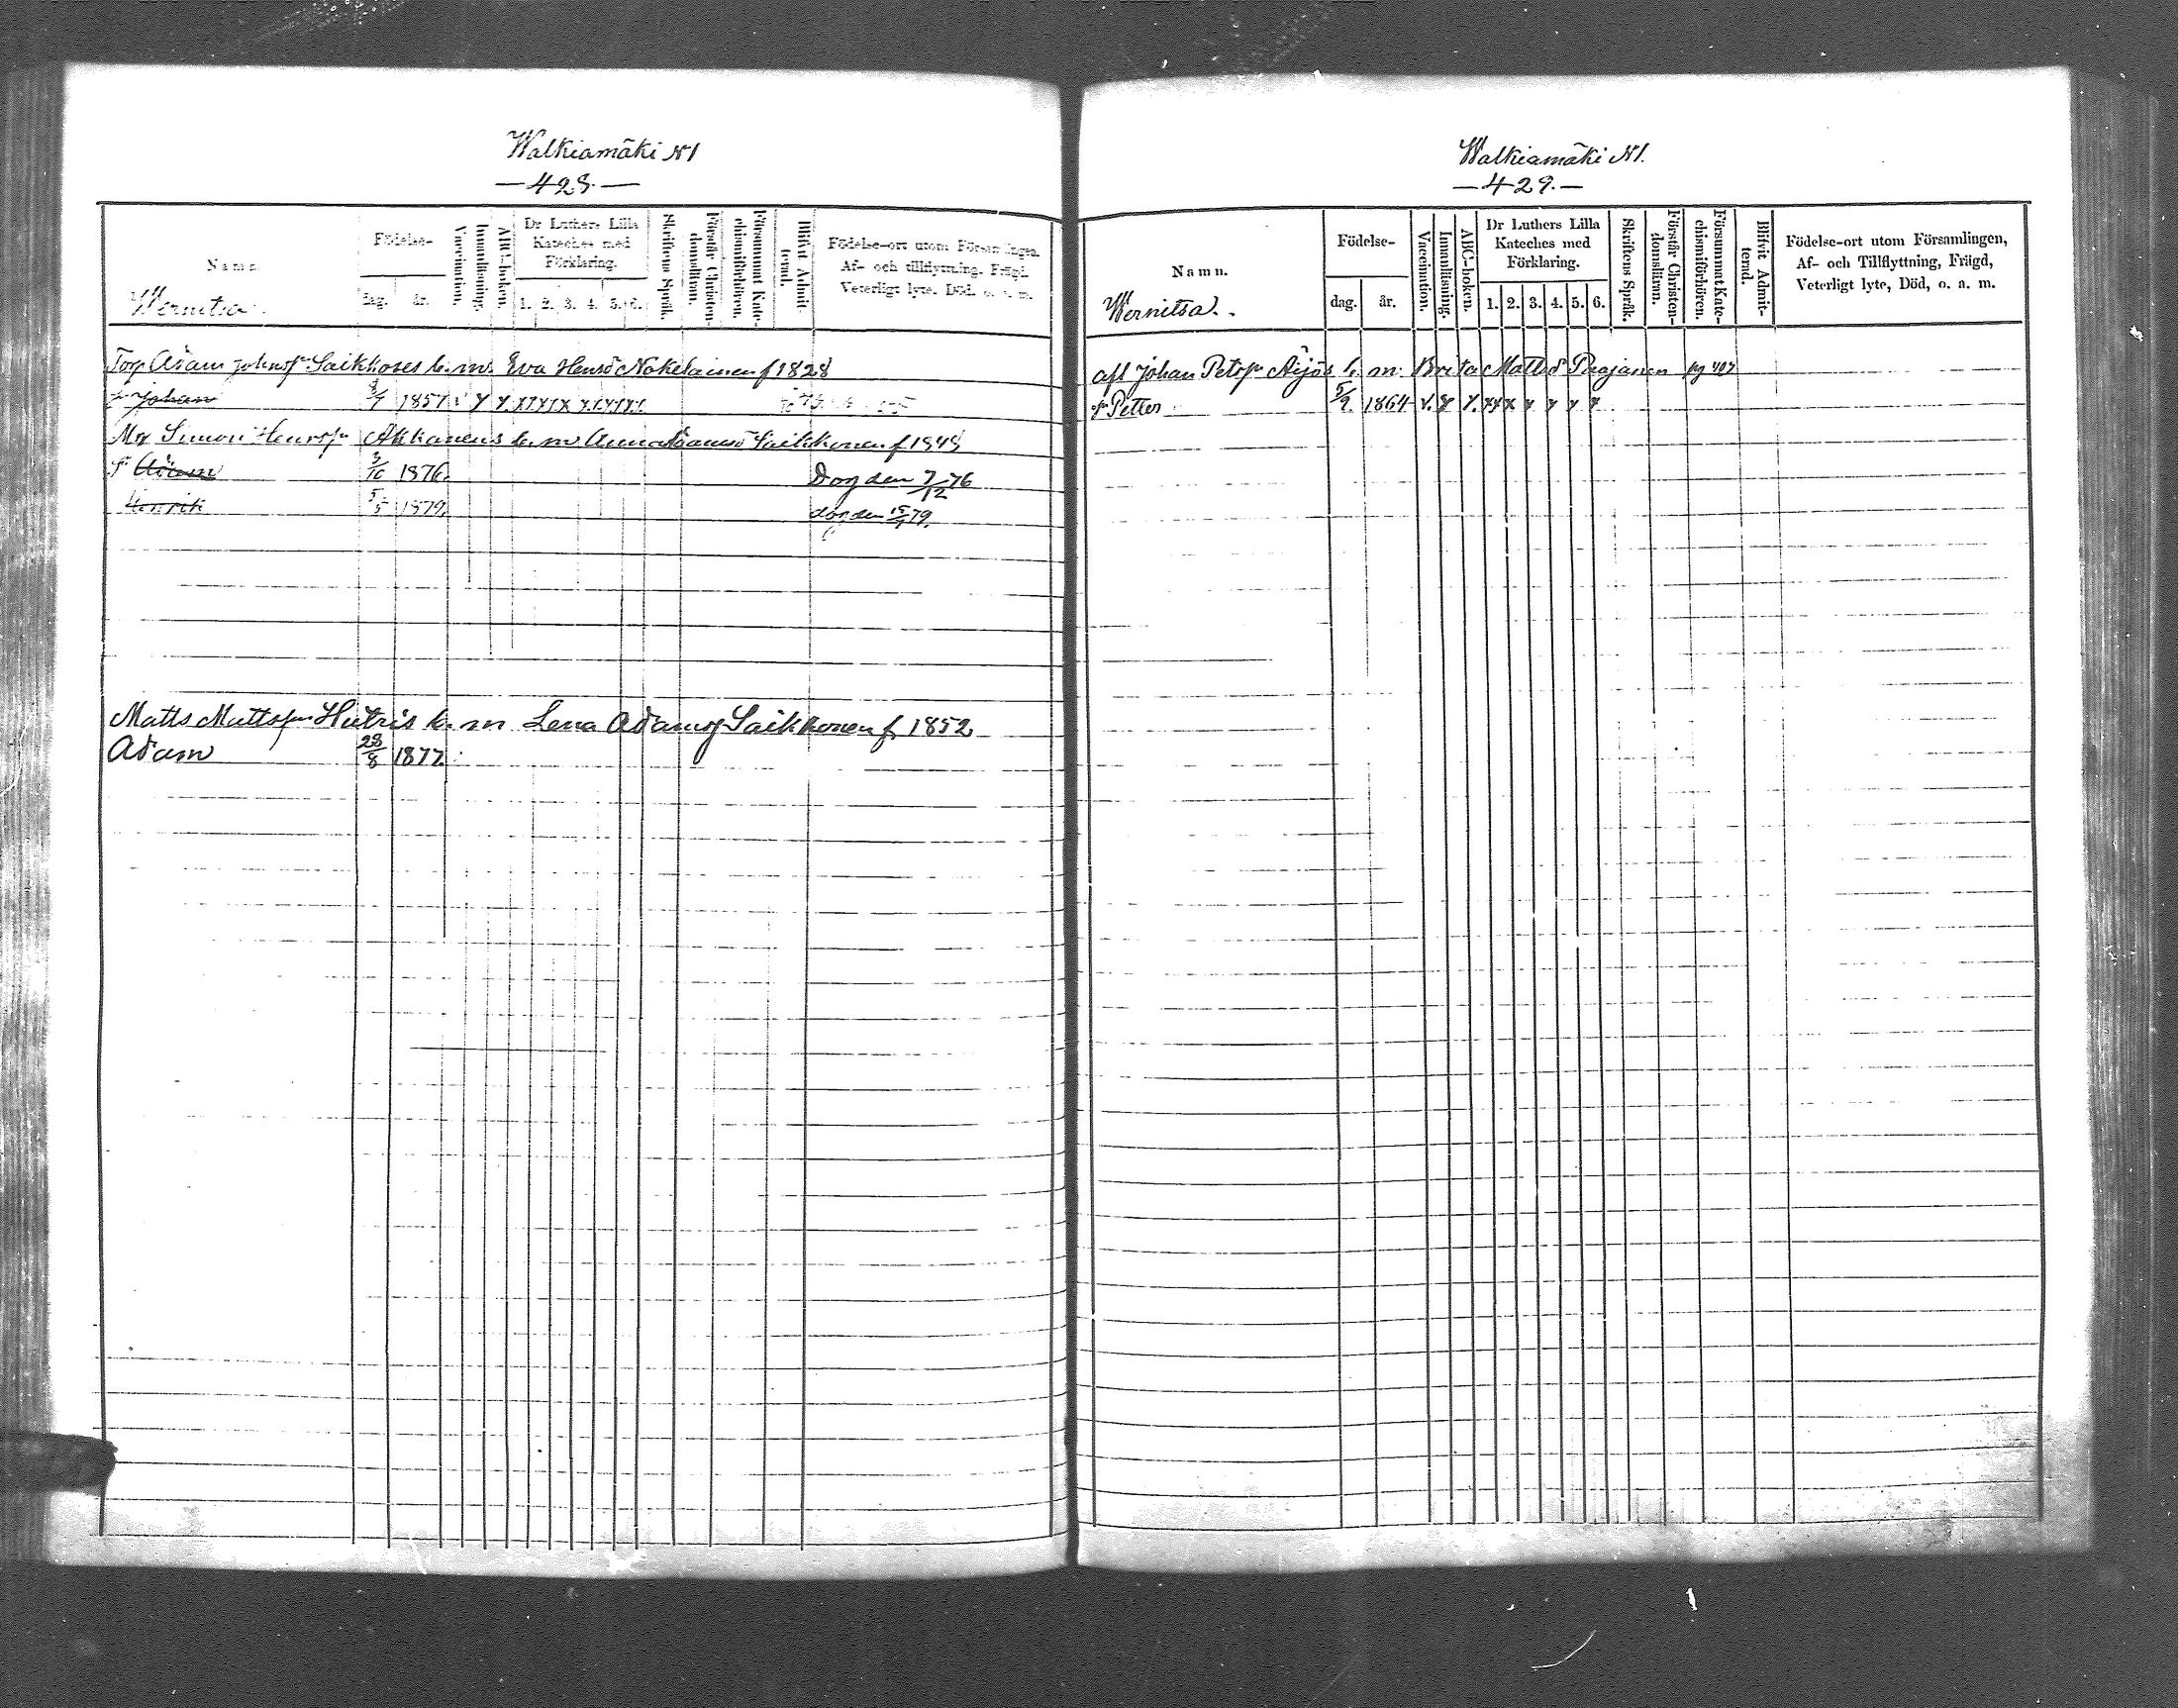 Walkiamäki N1
— 428. —
Namn.
Födelse-
dag. år.
Vaccination.
Innanläsning.
ABC-boken.
Dr Luthers Lilla Kateches med Förklaring.
1. 2. 3. 4. 5. 6.
Skriftens Språk.
Förstår Christendomsläran.
Försummat Katechismiförhören.
Blifvit Admitterad.
Födelse-ort utom Församlingen,
Af- och tillflyttning, Frägd,
Veterligt lyte, Död, o. a. m.
Wernitsa.
Torp Adam Johansp Saikkoses b. m. Eva Hensd Nokelainen f 1828
Johan 1857
Simon Henrsp Akkanens b. m. Anna Adamsd Saikkonen f 1848
Adam 3/10 1876. Dog den 7/12 76
Henrik 5/5 1879. dog den 79.
Matts Mattsp Hutris b. m Lena Adamsd Saikkonen f 1852
Adam 28/8 1877.
Walkiamäki N1.
— 429. —
Namn.
Födelse-
dag. år.
Vaccination.
Innanläsning.
ABC-boken.
Dr Luthers Lilla
Kateches med
Förklaring.
1. 2. 3. 4. 5. 6.
Skriftens Språk.
Förstår Christen-
domsläran.
Försummat Kate-
chismiförhören.
Blifvit Admit-
terad.
Födelse-ort utom Församlingen,
Af- och Tillflyttning, Frägd,
Veterligt lyte, Död, o. a. m.
Wernitsa.
afl Johan Petsp Äijös b. m. Brita Mattsd Purajanen pg 407
Petter 5/9. 1864